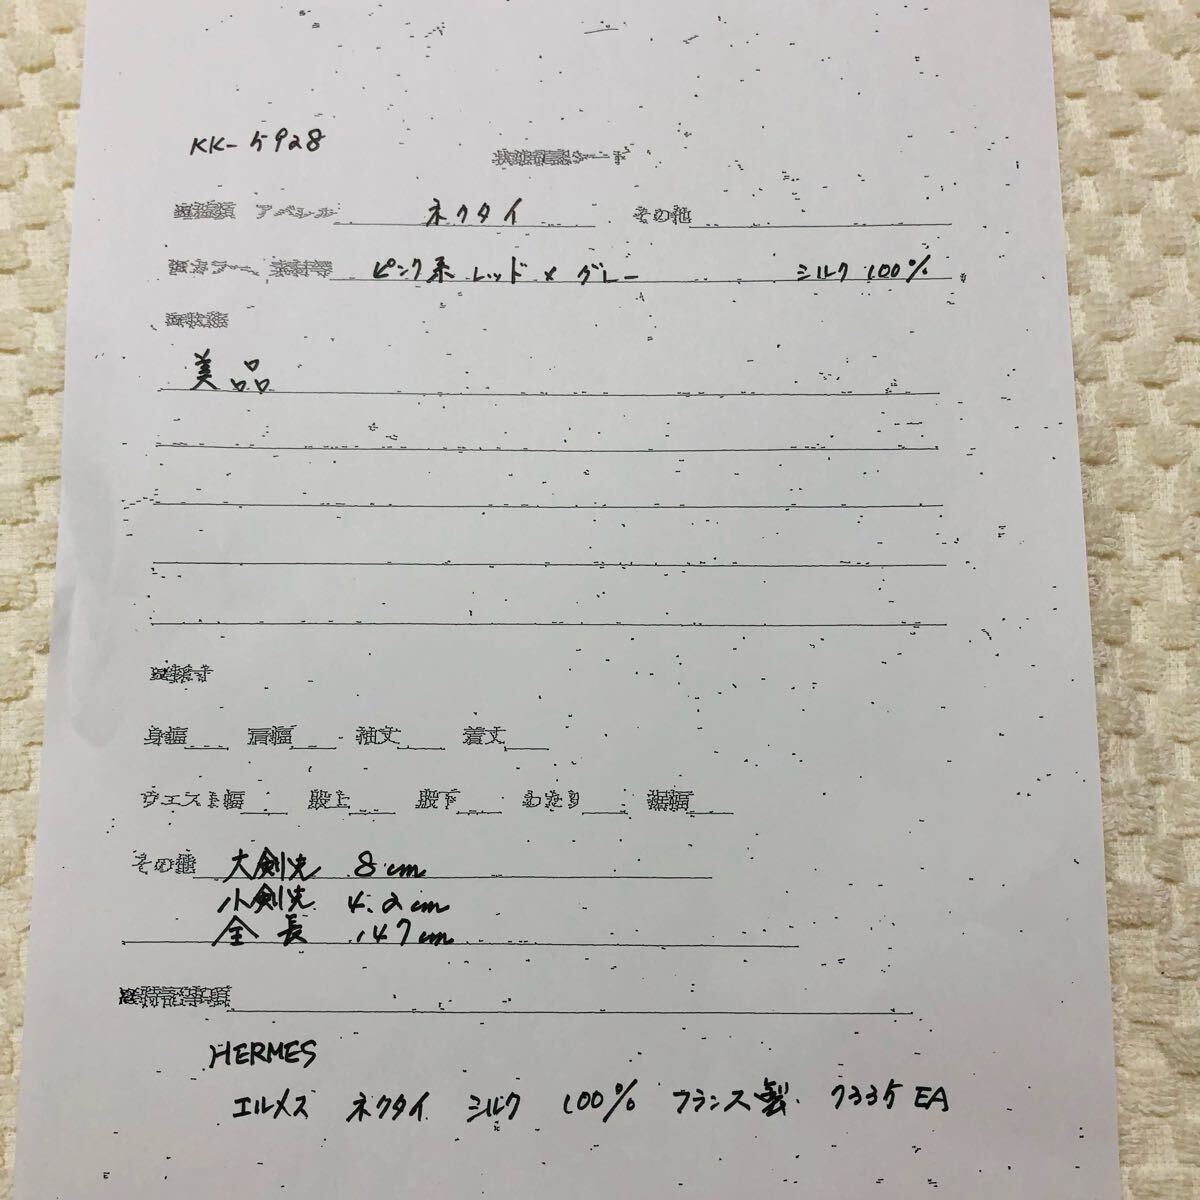 KK-5928
状態確認シート
アパレル ネクタイ その他
カラー、素材等 ピンク系 レッド × グレー シルク 100%
状態
美品
採寸
身幅 肩幅 袖丈 着丈
ウエスト幅 股上 股下 わたり 裾幅
その他 大剣先 8cm
小剣先 4.2cm
全長 147cm
特記事項
HERMES
エルメス ネクタイ シルク 100% フランス製 7335 EA